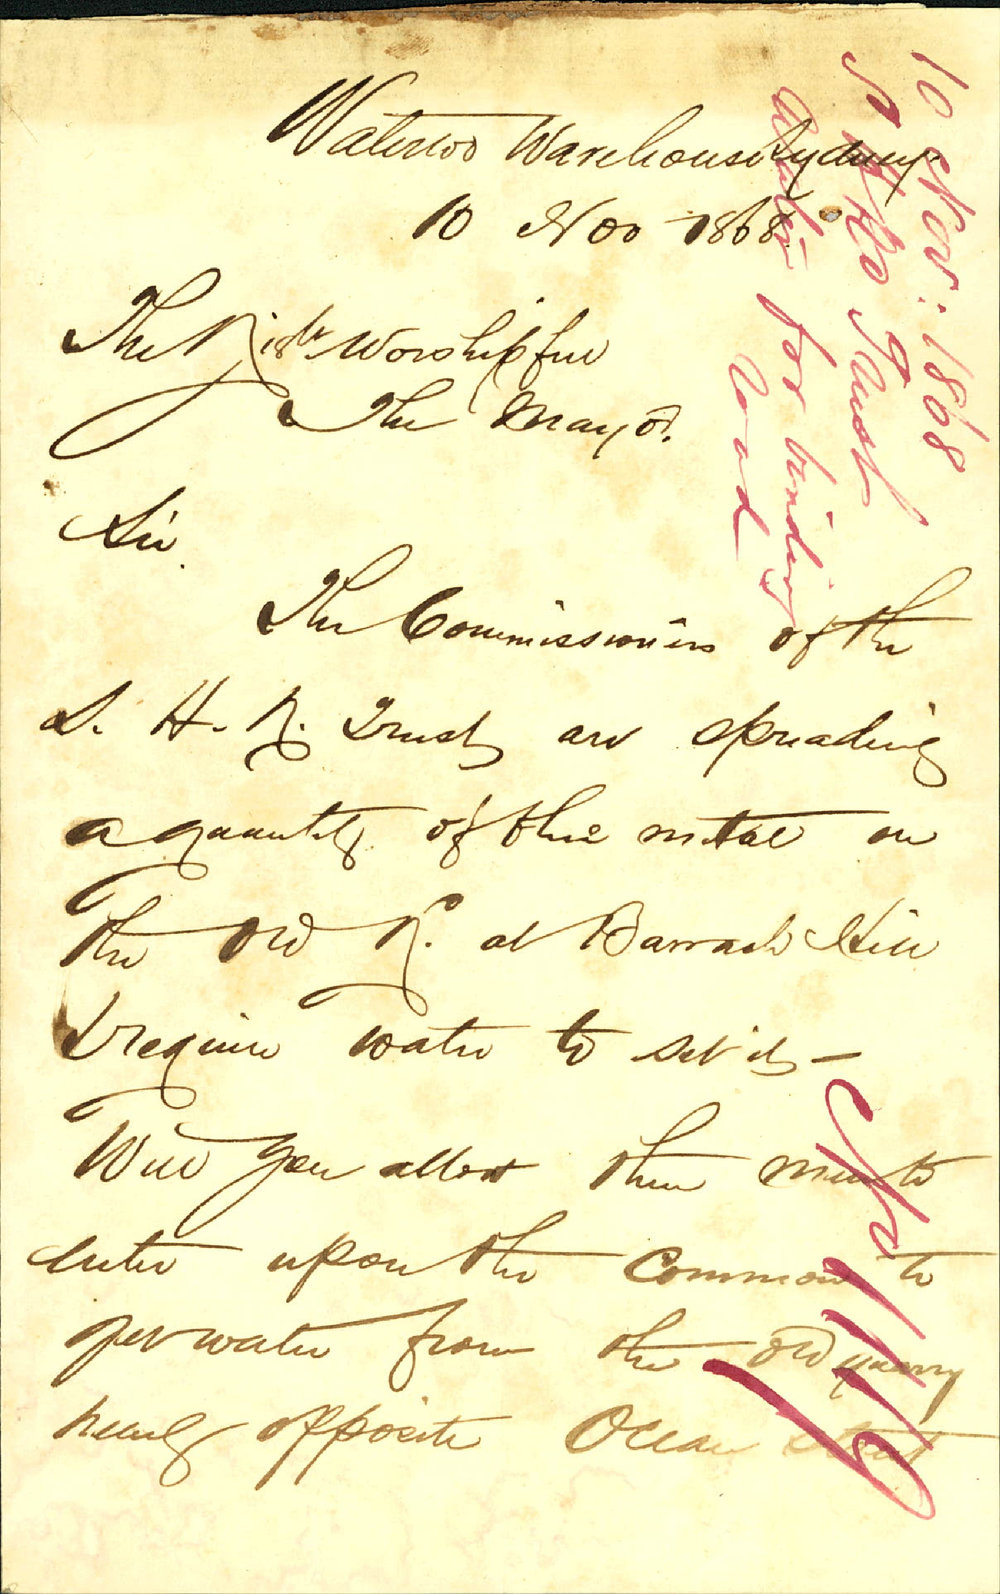 Waterloo Warehouse Sydney
10 Nov 1868.
The Right Worshipful
The Mayor.
Sir.
The Commissioners of the
S. H. R. Trust are spreading
a quantity of blue metal on
the Old R. at Barrack Hill
& require water to set it —
Will you allow their men to
enter upon the Common to
get water from the old quarry
nearly opposite Ocean Street
10 Nov: 1868
S H Rd Trust
Water for binding
road
No 1119